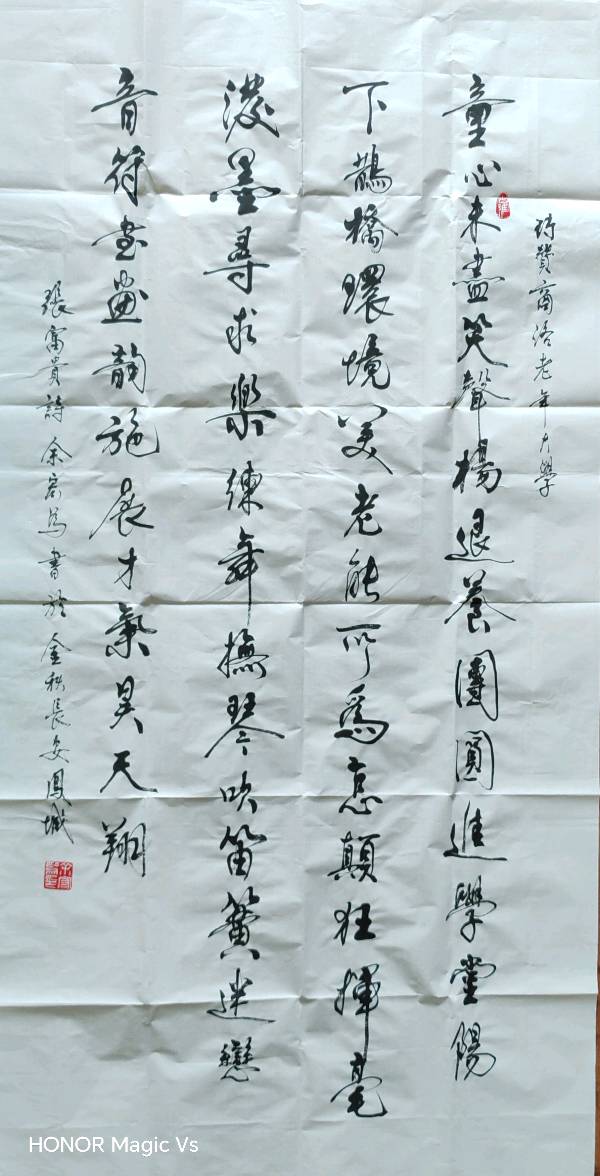 詩贊商洛老年大學
童心未盡笑聲揚退養團圓進學堂陽
下鵲橋環境美老能所爲意顛狂揮毫
潑墨尋求樂練舞撫琴吹笛簧迷戀
音符書畫韻施展才氣昊天翔
張富貴詩余 書於金秋長安鳳城
HONOR Magic Vs